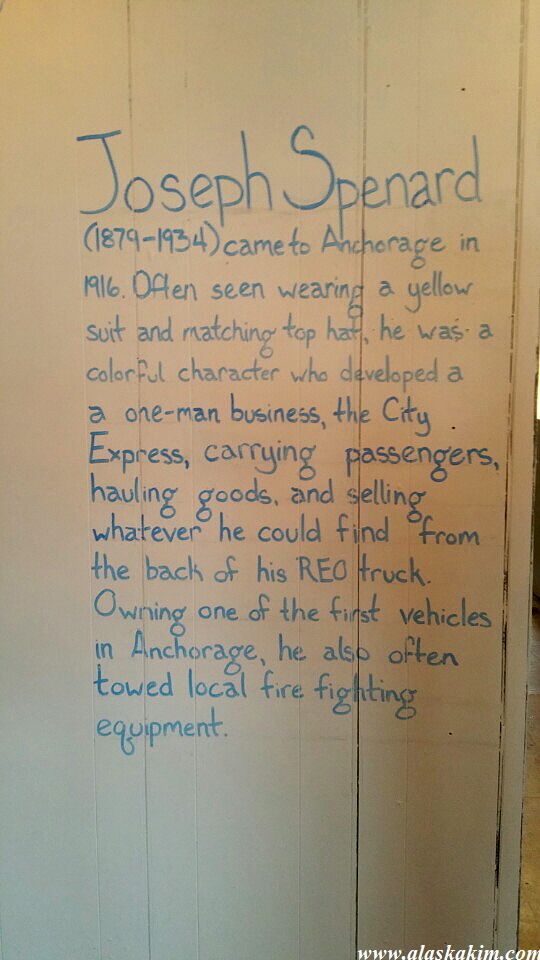 Joseph Spenard
(1879-1934) came to Anchorage in
1916. Often seen wearing a yellow
suit and matching top hat, he was a
colorful character who developed a
a one-man business, the City
Express, carrying passengers,
hauling goods, and selling
whatever he could find from
the back of his REO truck.
Owning one of the first vehicles
in Anchorage, he also often
towed local fire fighting
equipment.
www.alaskakim.com